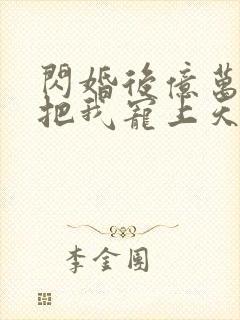 閃婚後億萬
把我寵上天
李金圓